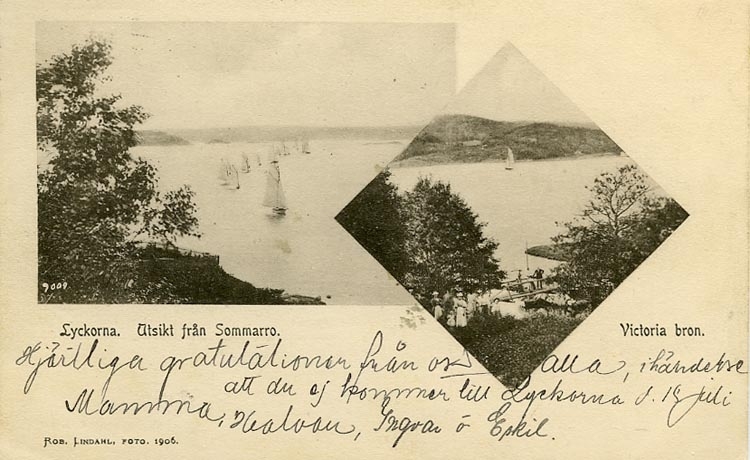 9009
Lyckorna. Utsikt från Sommarro.
Victoria bron.
Hjärtliga gratulationer från oss alla, ihändelse
att du ej kommer till Lyckorna d. juli
Mamma, Ingvar o Eskil.
ROB. LINDAHL, FOTO. 1906.